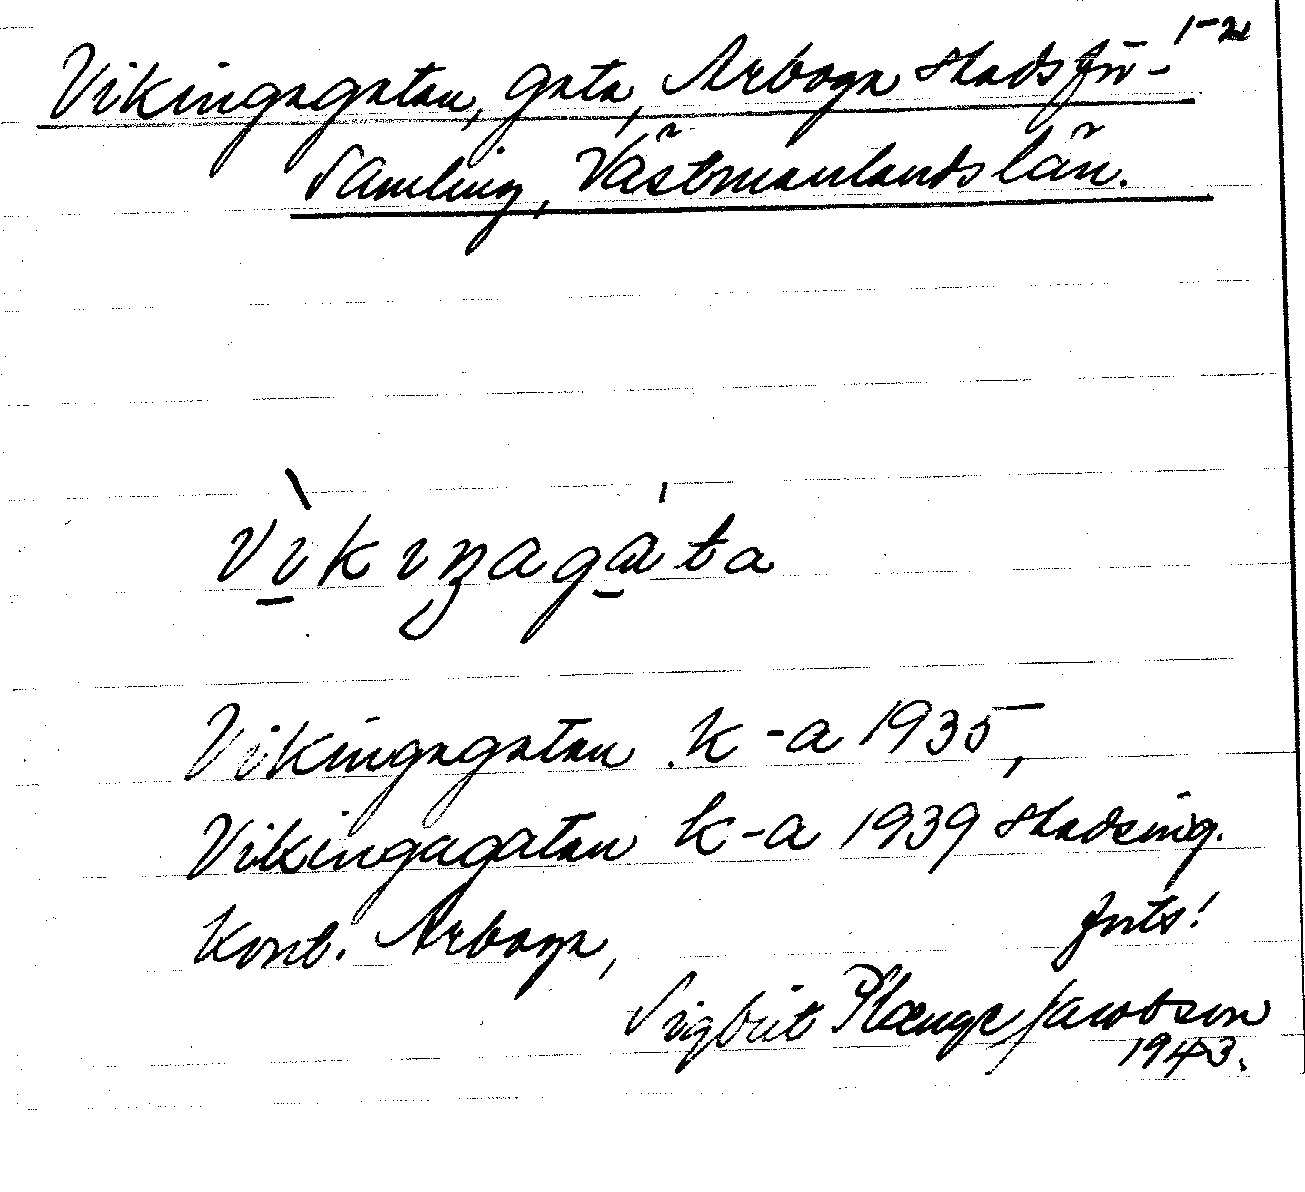 1-2
Vikingagatan, gata, Arboga stadsför-
samling, Västmanlands län.
vìkiŋagáta
Vikingagatan k-a 1935,
Vikingagatan k-a 1939 stadsing.
kont. Arboga, forts!
Sigbrit Plænge Jacobson
1943.